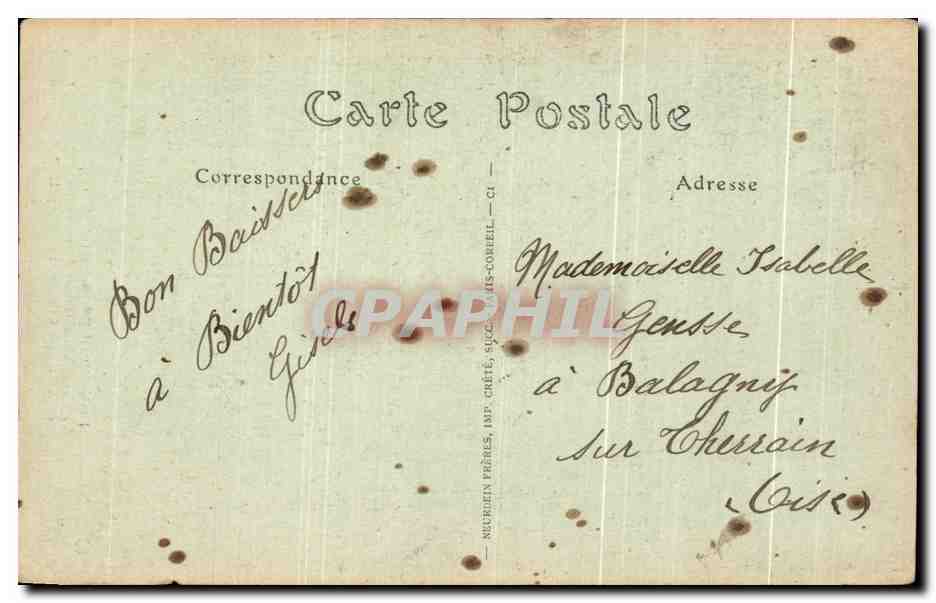 Carte Postale
Correspondance
Adresse
Bon Baissers
à Bientôt
Gisels
NEURDEIN FRÈRES, IMP. CRÉTÉ, SUCC. PARIS-CORBEIL. — CI —
Mademoiselle Isabelle
Gensse
à Balagny
sur Therrain
(Oise)
CPAPHIL